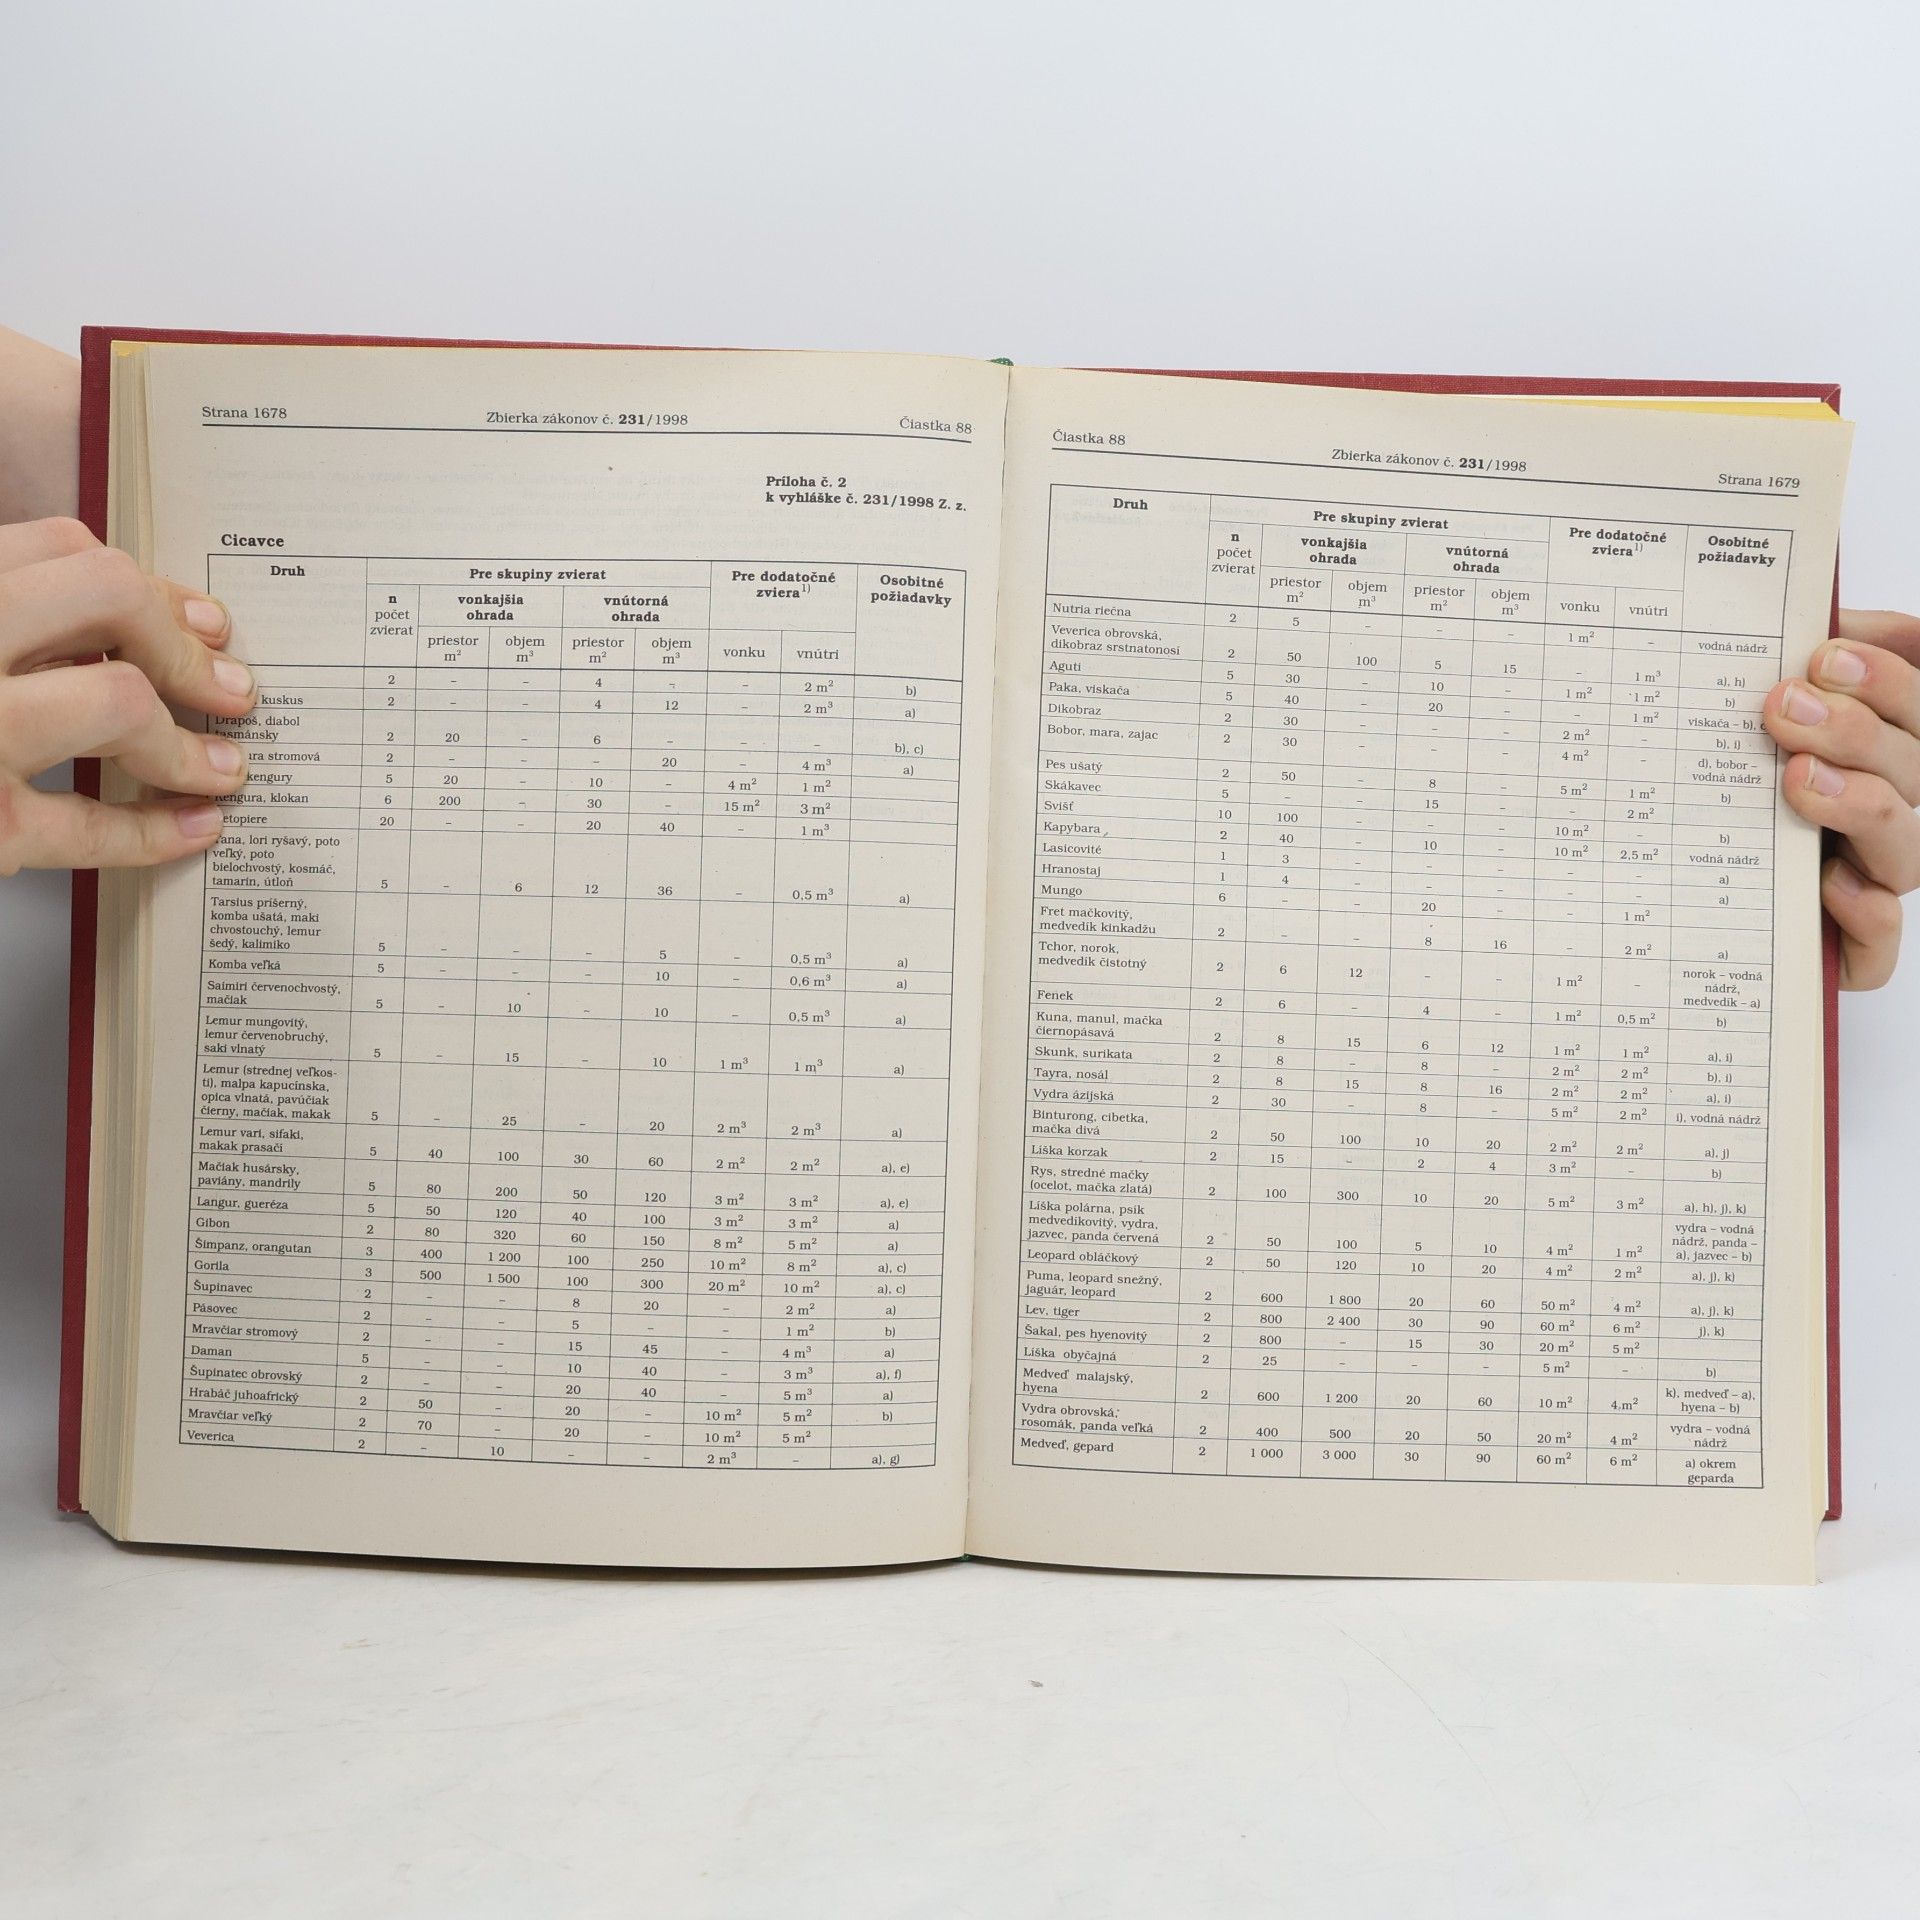 Strana 1678 Zbierka zákonov č. 231/1998 Čiastka 88
Príloha č. 2
k vyhláške č. 231/1998 Z. z.
Cicavce
Druh Pre skupiny zvierat Pre dodatočné zviera1) Osobitné požiadavky
n počet zvierat vonkajšia ohrada vnútorná ohrada
priestor m² objem m³ priestor m² objem m³ vonku vnútri
2 – – 4 – – 2 m² b)
kuskus 2 – – 4 12 – 2 m³ a)
Drapoš, diabol
tasmánsky 2 20 – 6 – – – b), c)
stromová 2 – – – 20 – 4 m³ a)
kengury 5 20 – 10 – 4 m² 1 m²
Kengura, klokan 6 200 – 30 – 15 m² 3 m²
20 – – 20 40 – 1 m³
Tana, lori ryšavý, poto
veľký, poto
bielochvostý, kosmáč,
tamarin, útloň 5 – 6 12 36 – 0,5 m³ a)
Tarsius príšerný,
komba ušatá, maki
chvostouchý, lemur
šedý, kalimiko 5 – – – 5 – 0,5 m³ a)
Komba veľká 5 – – – 10 – 0,6 m³ a)
Saimiri červenochvostý,
mačiak 5 – 10 – 10 – 0,5 m³ a)
Lemur mungovitý,
lemur červenobruchý,
saki vlnatý 5 – 15 – 10 1 m³ 1 m³ a)
Lemur (strednej veľkos-
ti), malpa kapucínska,
opica vlnatá, pavúčiak
čierny, mačiak, makak 5 – 25 – 20 2 m³ 2 m³ a)
Lemur vari, sifaki,
makak prasačí 5 40 100 30 60 2 m² 2 m² a), e)
Mačiak husársky,
paviány, mandrily 5 80 200 50 120 3 m² 3 m² a), e)
Langur, gueréza 5 50 120 40 100 3 m² 3 m² a)
Gibon 2 80 320 60 150 8 m² 5 m² a)
Šimpanz, orangutan 3 400 1 200 100 250 10 m² 8 m² a), c)
Gorila 3 500 1 500 100 300 20 m² 10 m² a), c)
Šupinavec 2 – – 8 20 – 2 m² a)
Pásovec 2 – – 5 – – 1 m² b)
Mravčiar stromový 2 – – 15 45 – 4 m³ a)
Daman 5 – – 10 40 – 3 m³ a), f)
Šupinatec obrovský 2 – – 20 40 – 5 m³ a)
Hrabáč juhoafrický 2 50 – 20 – 10 m² 5 m² b)
Mravčiar veľký 2 70 – 20 – 10 m² 5 m²
Veverica 2 – 10 – – 2 m³ – a), g)
Čiastka 88 Zbierka zákonov č. 231/1998 Strana 1679
Druh Pre skupiny zvierat Pre dodatočné zviera1) Osobitné požiadavky
n počet zvierat vonkajšia ohrada vnútorná ohrada
priestor m² objem m³ priestor m² objem m³ vonku vnútri
Nutria riečna 2 5 – – – 1 m² – vodná nádrž
Veverica obrovská,
dikobraz srstnatonosí 2 50 100 5 15 – 1 m³ a), h)
Aguti 5 30 – 10 – 1 m² 1 m² b)
Paka, viskača 5 40 – 20 – – 1 m² viskača – b),
Dikobraz 2 30 – – – 2 m² – b), i)
Bobor, mara, zajac 2 30 – – – 4 m² – d), bobor –
vodná nádrž
Pes ušatý 2 50 – 8 – 5 m² 1 m² b)
Skákavec 5 – – 15 – – 2 m²
Svišť 10 100 – – – 10 m² – b)
Kapybara 2 40 – 10 – 10 m² 2,5 m² vodná nádrž
Lasicovité 1 3 – – – – – a)
Hranostaj 1 4 – – – – – a)
Mungo 6 – – 20 – – 1 m²
Fret mačkovitý,
medvedík kinkadžu 2 – – 8 16 – 2 m² a)
Tchor, norok,
medvedík čistotný 2 6 12 – – 1 m² – norok – vodná
nádrž,
medvedík – a)
Fenek 2 6 – 4 – 1 m² 0,5 m² b)
Kuna, manul, mačka
čiernopásavá 2 8 15 6 12 1 m² 1 m² a), i)
Skunk, surikata 2 8 – 8 – 2 m² 2 m² b), i)
Tayra, nosál 2 8 15 8 16 2 m² 2 m² a), i)
Vydra ázijská 2 30 – 8 – 5 m² 2 m² i), vodná nádrž
Binturong, cibetka,
mačka divá 2 50 100 10 20 2 m² 2 m² a), j)
Líška korzak 2 15 – 2 4 3 m² – b)
Rys, stredné mačky
(ocelot, mačka zlatá) 2 100 300 10 20 5 m² 3 m² a), h), j), k)
Líška polárna, psík
medvedíkovitý, vydra,
jazvec, panda červená 2 50 100 5 10 4 m² 1 m² vydra – vodná
nádrž, panda –
a), jazvec – b)
Leopard obláčkový 2 50 120 10 20 4 m² 2 m² a), j), k)
Puma, leopard snežný,
jaguár, leopard 2 600 1 800 20 60 50 m² 4 m² a), j), k)
Lev, tiger 2 800 2 400 30 90 60 m² 6 m² j), k)
Šakal, pes hyenovitý 2 800 – 15 30 20 m² 5 m²
Líška obyčajná 2 25 – – – 5 m² – b)
Medveď malajský,
hyena 2 600 1 200 20 60 10 m² 4 m² k), medveď – a),
hyena – b)
Vydra obrovská,
rosomák, panda veľká 2 400 500 20 50 20 m² 4 m² vydra – vodná
nádrž
Medveď, gepard 2 1 000 3 000 30 90 60 m² 6 m² a) okrem
geparda